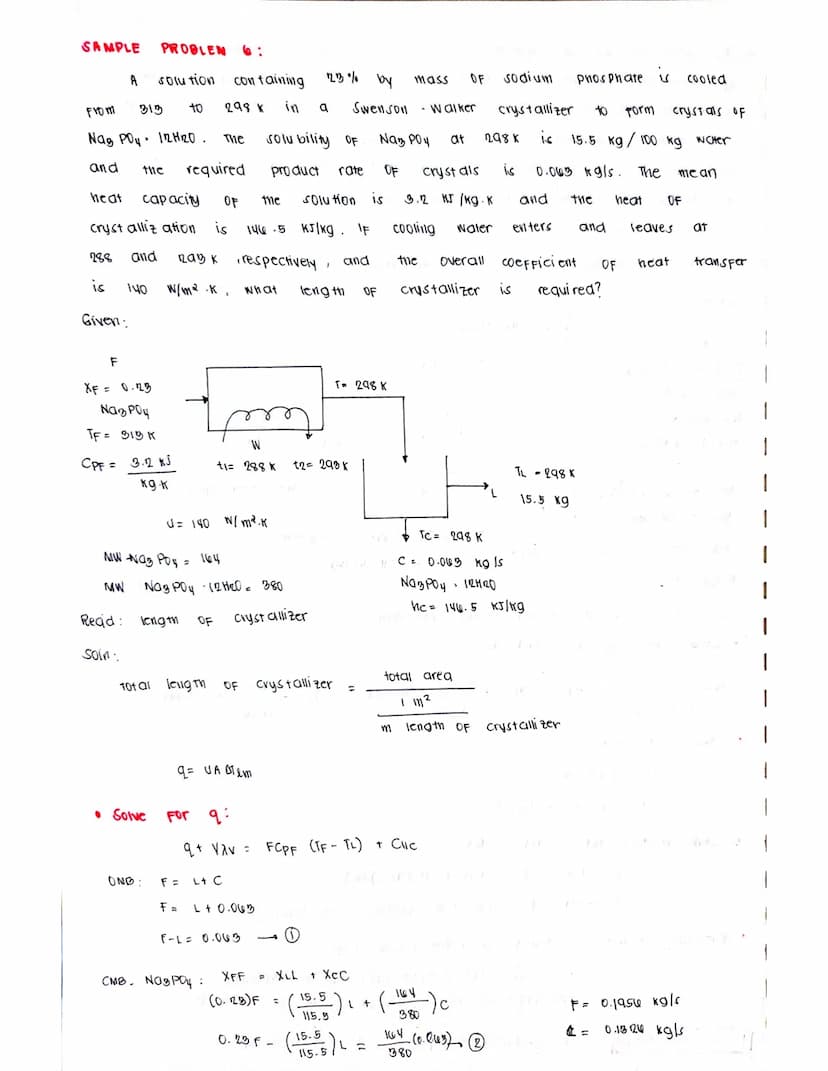 SAMPLE PROBLEM 6:
A solution containing 23% by mass OF sodium phosphate is cooled
From 313 to 298 K in a Swenson-Walker crystallizer to form crystals OF
Na3 PO4 · 12H2O. The solubility OF Na3 PO4 at 298K is 15.5 kg / 100 kg water
and the required product rate OF crystals is 0.063 kg/s. The mean
heat capacity OF the solution is 3.2 KJ /kg·K and the heat OF
crystallization is 146.5 KJ/kg. IF cooling water enters and leaves at
288 and 293 K, respectively, and the overall coefficient OF heat transfer
is 140 W/m² ·K, what length OF crystallizer is required?
Given:
F
XF = 0.23
Na3PO4
TF = 313 K
CPF = 3.2 kJ / kg·K
T= 298 K
W
t1= 288 K t2= 293 K
U= 140 W/m²·K
TL = 298 K
15.5 kg
L
Tc = 298 K
C = 0.063 kg/s
Na3PO4 · 12H2O
hc = 146.5 KJ/kg
MW Na3 PO4 = 164
MW Na3PO4 · 12H2O = 380
Req'd: length OF crystallizer
Soln:
Total length OF crystallizer = total area / 1 m² / m length OF crystallizer
q= UA ΔTLm
• Solve For q:
q + Vλv = FCPF (TF - TL) + CHC
OMB: F = L + C
F = L + 0.063
F-L = 0.063 → ①
CMB. Na3PO4: XFF = XLL + XCC
(0.23)F = (15.5/115.5) L + (164/380) C
0.23F - (15.5/115.5) L = 164/380 (0.063) → ②
F = 0.1956 kg/s
L = 0.1326 kg/s